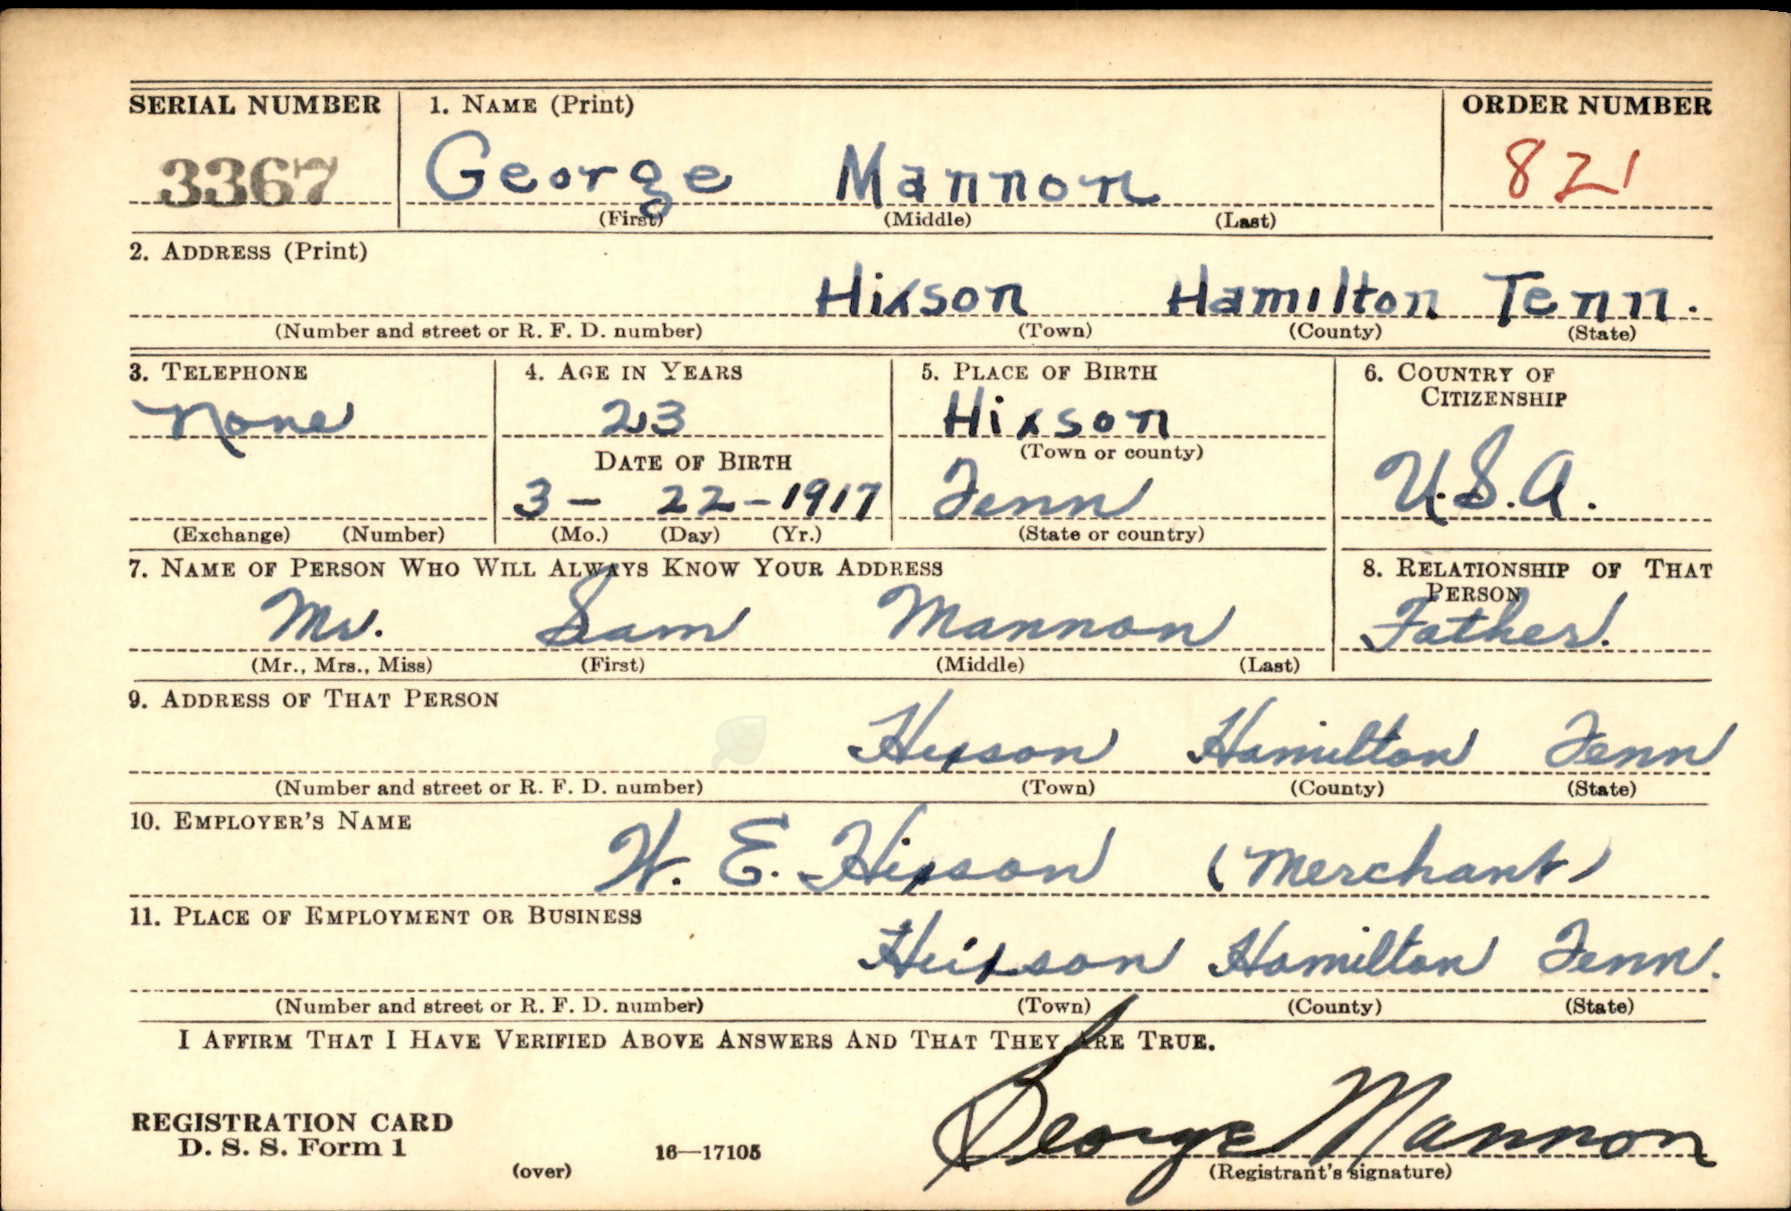 SERIAL NUMBER 1. NAME (Print) ORDER NUMBER
3367 George Mannon 821
(First) (Middle) (Last)
2. ADDRESS (Print)
Hixson Hamilton Tenn.
(Number and street or R. F. D. number) (Town) (County) (State)
3. TELEPHONE 4. AGE IN YEARS 5. PLACE OF BIRTH 6. COUNTRY OF
CITIZENSHIP
None 23 Hixson
DATE OF BIRTH (Town or county)
3- 22-1917 Tenn U.S.A.
(Exchange) (Number) (Mo.) (Day) (Yr.) (State or country)
7. NAME OF PERSON WHO WILL ALWAYS KNOW YOUR ADDRESS 8. RELATIONSHIP OF THAT
PERSON
Mr. Sam Mannon Father.
(Mr., Mrs., Miss) (First) (Middle) (Last)
9. ADDRESS OF THAT PERSON
Hixson Hamilton Tenn
(Number and street or R. F. D. number) (Town) (County) (State)
10. EMPLOYER'S NAME
W. E. Hixson (Merchant)
11. PLACE OF EMPLOYMENT OR BUSINESS
Hixson Hamilton Tenn.
(Number and street or R. F. D. number) (Town) (County) (State)
I AFFIRM THAT I HAVE VERIFIED ABOVE ANSWERS AND THAT THEY ARE TRUE.
REGISTRATION CARD
D. S. S. Form 1 16—17105 George Mannon
(over) (Registrant's signature)